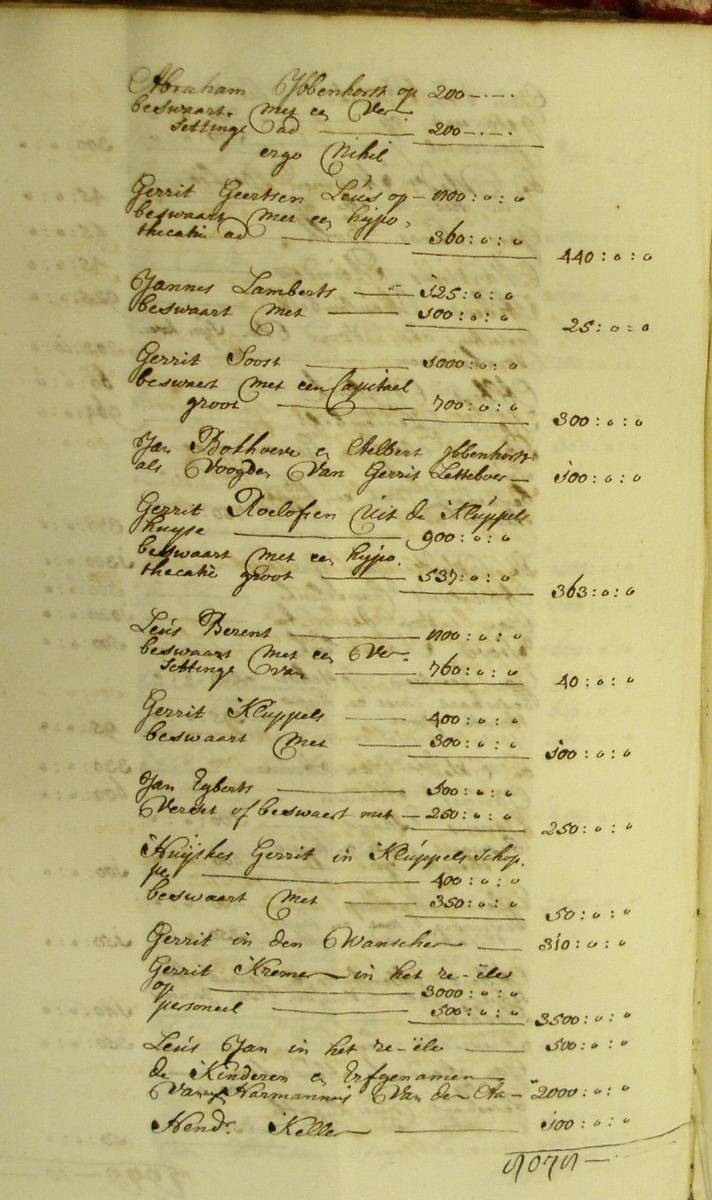 Abraham Ybbenhorst op 200 – . – .
beswaart met een Ver-
settinge ad 200 – . – .
ergo Nihil
Gerrit Geertsen Leús op – 800 : 0 : 0
beswaart met een hijpo-
thecatie ad 360 : 0 : 0 440 : 0 : 0
Jannes Lamberts 125 : 0 : 0
beswaart met 100 : 0 : 0 25 : 0 : 0
Gerrit Soost 1000 : 0 : 0
beswaert met een Capitael
groot 700 : 0 : 0 300 : 0 : 0
Jan Bothoeve en Aelbert Ybbenhorst
als Voogden Van Gerrit Letteboer – 100 : 0 : 0
Gerrit Roelofsen Uit de Klúppels
huijse 900 : 0 : 0
beswaart met een hijpo-
thecatie groot 537 : 0 : 0 363 : 0 : 0
Leús Berent 800 : 0 : 0
beswaart met een Ver-
settinge van 760 : 0 : 0 40 : 0 : 0
Gerrit Klúppels 400 : 0 : 0
beswaart met 300 : 0 : 0 100 : 0 : 0
Jan Egberts 500 : 0 : 0
Verset of beswaert met – 250 : 0 : 0 250 : 0 : 0
Huijskes Gerrit in Klúppels Schop-
pe 400 : 0 : 0
beswaart met 350 : 0 : 0 50 : 0 : 0
Gerrit in den Wanscher 310 : 0 : 0
Gerrit Kremer in het re-ële
op 3000 : 0 : 0
personeel 500 : 0 : 0 3500 : 0 : 0
Leús Jan in het re-ële 500 : 0 : 0
de Kinderen en Erfgenamen
Van Harmannús Van der Aa – 2000 : 0 : 0
Hendr. Keller 100 : 0 : 0
8078 –